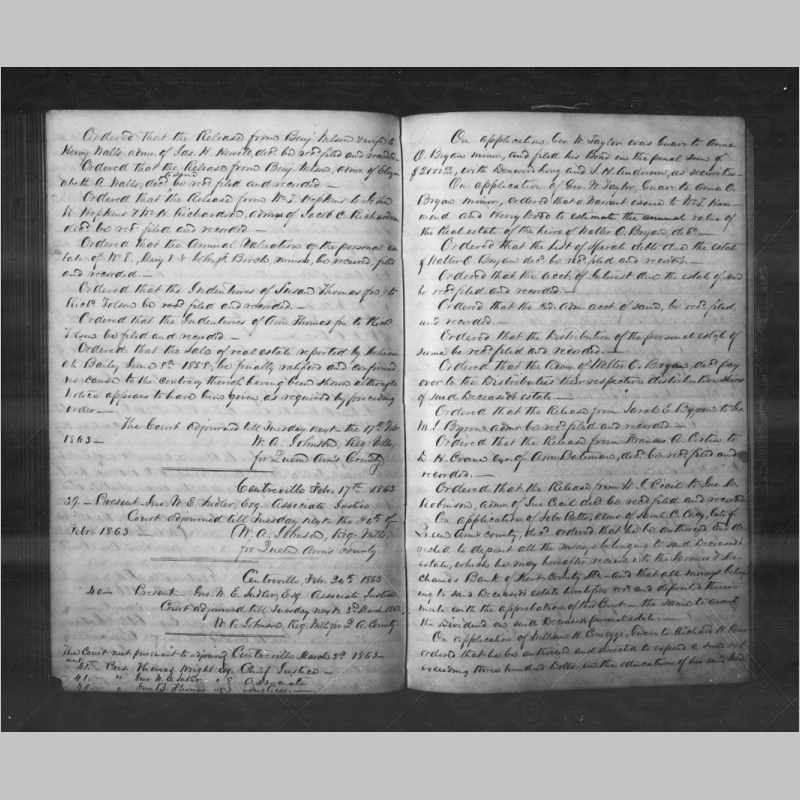 Ordered that the Release from Benj. Nelson & wife to
Henry Walls admr of Jas. H. Hewitt decd be recd filed and recorded
Ordered that the Release from Benj Nelson, admr of Eliz-
abeth A. Walls, decd be recd filed and recorded —
Ordered that the Release from W. J. Hopkins to John
W. Hopkins & Wm H. Richardson, admrs of Jacob C. Richardson
decd be recd filed and recorded —
Ordered that the Annual Valuation of the personal es-
tate of Wm E., Mary & Birch, minors, be received filed
and recorded —
Ordered that the Indentures of Susan Thomas to
Richd Folson be recd filed and recorded. —
Ordered that the Indentures of Ann Thomas to Richd
be filed and recorded —
Ordered that the sale of real estate reported by
Bailey June 8th 1858, be finally ratified and confirmed
no cause to the contrary thereof having been shown although
notice appears to have been given as required by preceding
order —
The Court adjourned till Tuesday next the 17th Feb
1863 — W. A. Johnson, Reg. Wills,
for Queen Ann's County
Centreville Feb. 17th 1863
39. — Present Jno. W. E. Sudler, Esq. Associate Justice
Court adjourned till Tuesday next the 24th of
Feb. 1863 — W. A. Johnson, Reg. Wills
for Queen Ann's County
Centreville, Feb. 24th 1863
40 — Present Jno. W. E. Sudler, Esq. Associate Justice
Court adjourned till Tuesday next 3d March 1863
W. A. Johnson, Reg. Wills for Q. A. County
The Court met pursuant to adjourn Centreville March 3d 1863 —
41. — Pres. Thomas Wright Esq. Chief Justice —
41. — " Jno. W. E. Sudler " Associate
On application Geo. W. Taylor was Guar. to Anna
O. Bryan minor, and filed his Bond in the penal sum of
with and J. H. Anderson, as securities —
On application of Geo. W. Taylor, Guar. to Anna O.
Bryan minor, ordered that a Warrant issue to Wm J.
and Henry to estimate the annual value of
the Real estate of the heirs of Walter O. Bryan, decd. —
Ordered that the list of Sperate debts due the estate
of Walter O. Bryan decd be recd filed and recorded. —
Ordered that the acct. of Interest due the estate of same
be recd filed and recorded. —
Ordered that the Adm acct of same, be recd filed
and recorded. —
Ordered that the Distribution of the personal estate of
same be recd filed and recorded. —
Ordered that the Admr of Walter O. Bryan, decd pay
over to the Distributees their respective distributive shares
of said Deceased's estate. —
Ordered that the Release from Sarah E. Byrnes to
M. J. Byrnes admr be recd filed and recorded —
Ordered that the Release from Frances A. to
D. H. Crane exr of Ann Bateman, decd be recd filed and
recorded. —
Ordered that the Release from W. J. Cecil to Jno.
Robinson, admr of Jno Cecil decd be recd filed and recorded
On application of John Potter, admr of C. late of
Queen Anns county, decd ordered that he be authorized and di-
rected to deposit all the moneys belonging to said Deceased's
estate, which he may hereafter receive in the Farmers & Me-
chanics Bank of Kent County, Md — and that all moneys belong-
ing to said Deceased's estate
with the approbation of this Court in the same to await
the Dividend on said Deceased's personal estate. —
On application of William H. Guar. to Richard H.
ordered that he be authorized and directed to expend a sum not
exceeding three hundred Dolls. in the education of his said ward